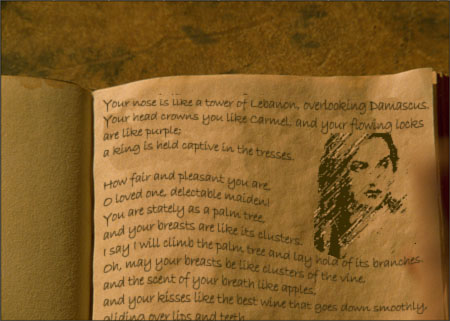 Your nose is like a tower of Lebanon, overlooking Damascus.
Your head crowns you like Carmel, and your flowing locks
are like purple;
a king is held captive in the tresses.
How fair and pleasant you are,
O loved one, delectable maiden!
You are stately as a palm tree,
and your breasts are like its clusters.
I say I will climb the palm tree and lay hold of its branches.
Oh, may your breasts be like clusters of the vine,
and the scent of your breath like apples,
and your kisses like the best wine that goes down smoothly,
gliding over lips and teeth.